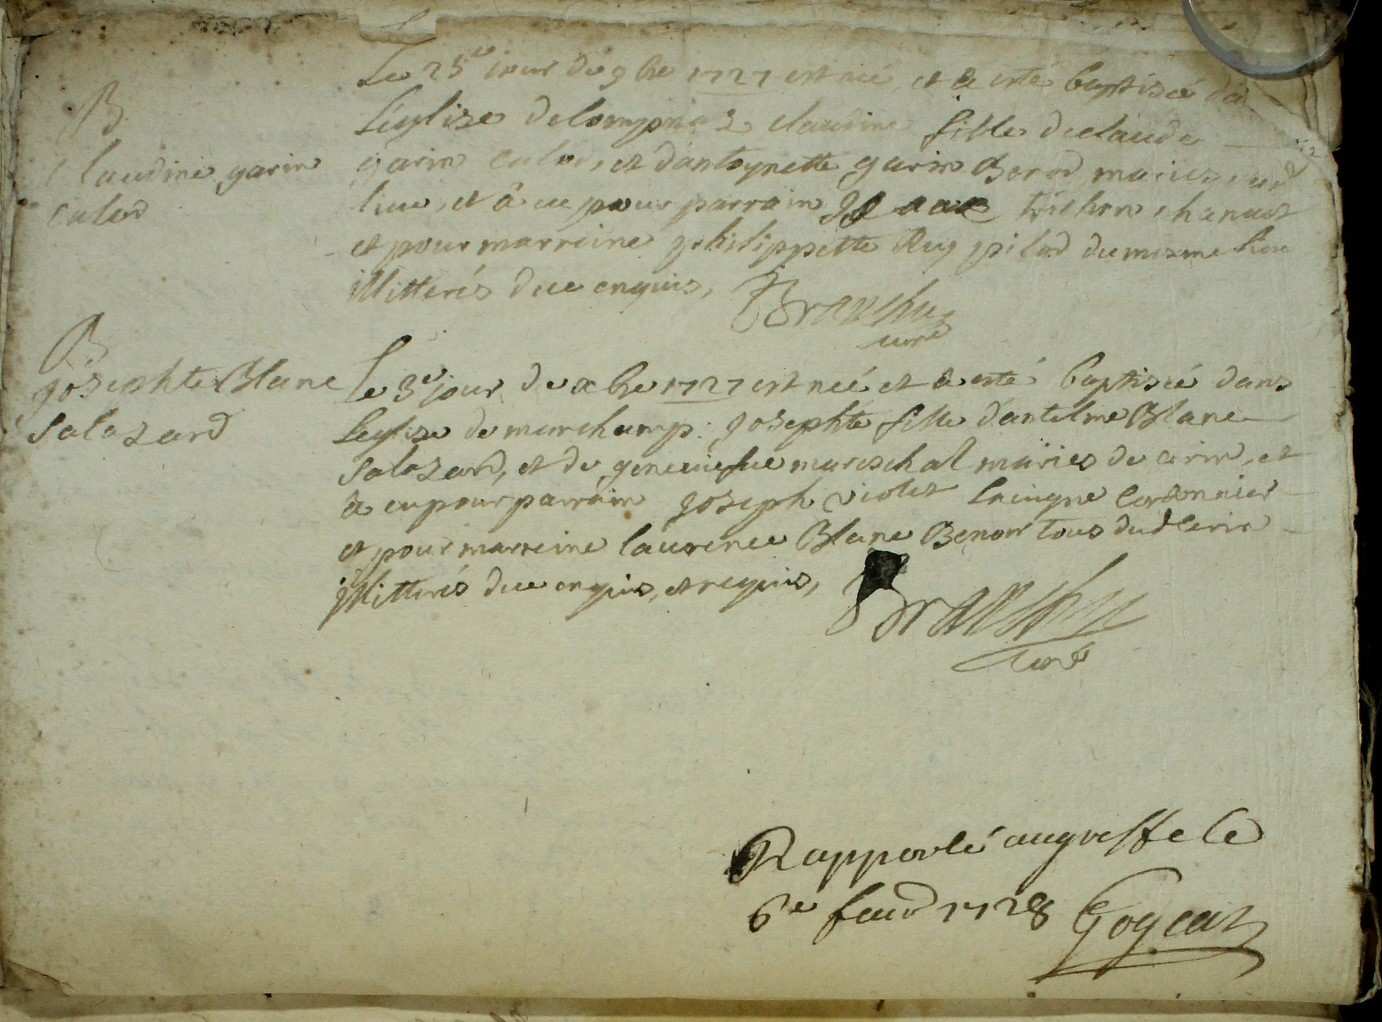 B
Claudine garin
culod
Le 25e jour de 9bre 1727 est neé, et a esté baptiseé da
L'eglise de lompnaz claudine fille de claude
garin culod, et d'antoynette garin Berod mariés, dud
lieu, et â eu pour parrain trichon chanut
et pour marreine philippette Ruy pilod du mesme lieu
illitterés de ce enquis,
Branchu
curé
B
Josephte Blanc
Salazard
Le 3e jour de xbre 1727 est neé et a esté baptiseé dans
L'eglise de marchamp: Josephte fille d'antelme Blanc
Salazard, et de geneviefve mareschal mariés de cerin, et
a eu pour parrain Joseph violet Lavigne cordonnier
et pour marreine laurence Blanc Benon tous dud Cerin
illitterés de ce enquis, et requis,
Branchu
curé
Rapporté au greffe le
6e feuv 1728